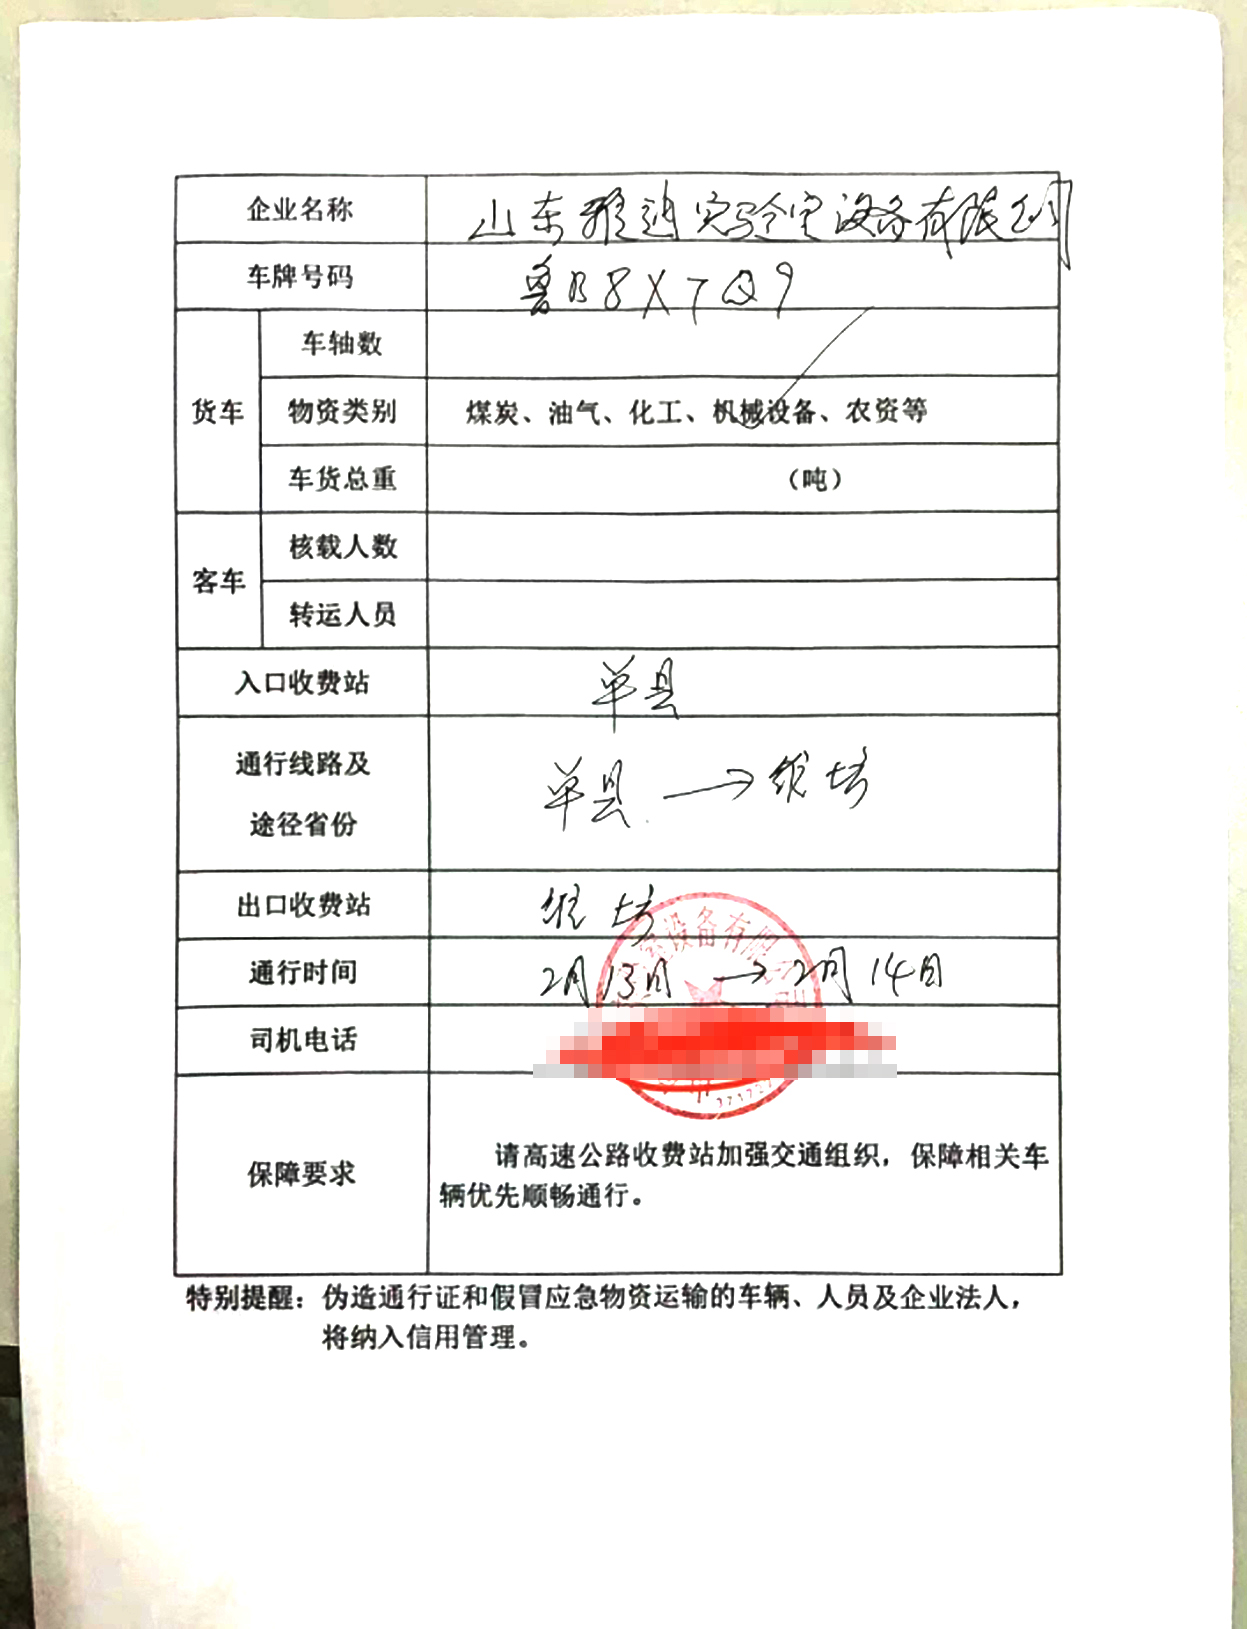 企业名称 山东雅迪实验室设备有限公司
车牌号码 鲁B8X7Q9
货车
车轴数
物资类别 煤炭、油气、化工、机械设备、农资等
车货总重 （吨）
客车
核载人数
转运人员
入口收费站 单县
通行线路及
途径省份
单县→潍坊
出口收费站 潍坊
设备有限公司
通行时间 2月13日→2月14日
司机电话
保障要求
请高速公路收费站加强交通组织，保障相关车
辆优先顺畅通行。
特别提醒：伪造通行证和假冒应急物资运输的车辆、人员及企业法人，
将纳入信用管理。